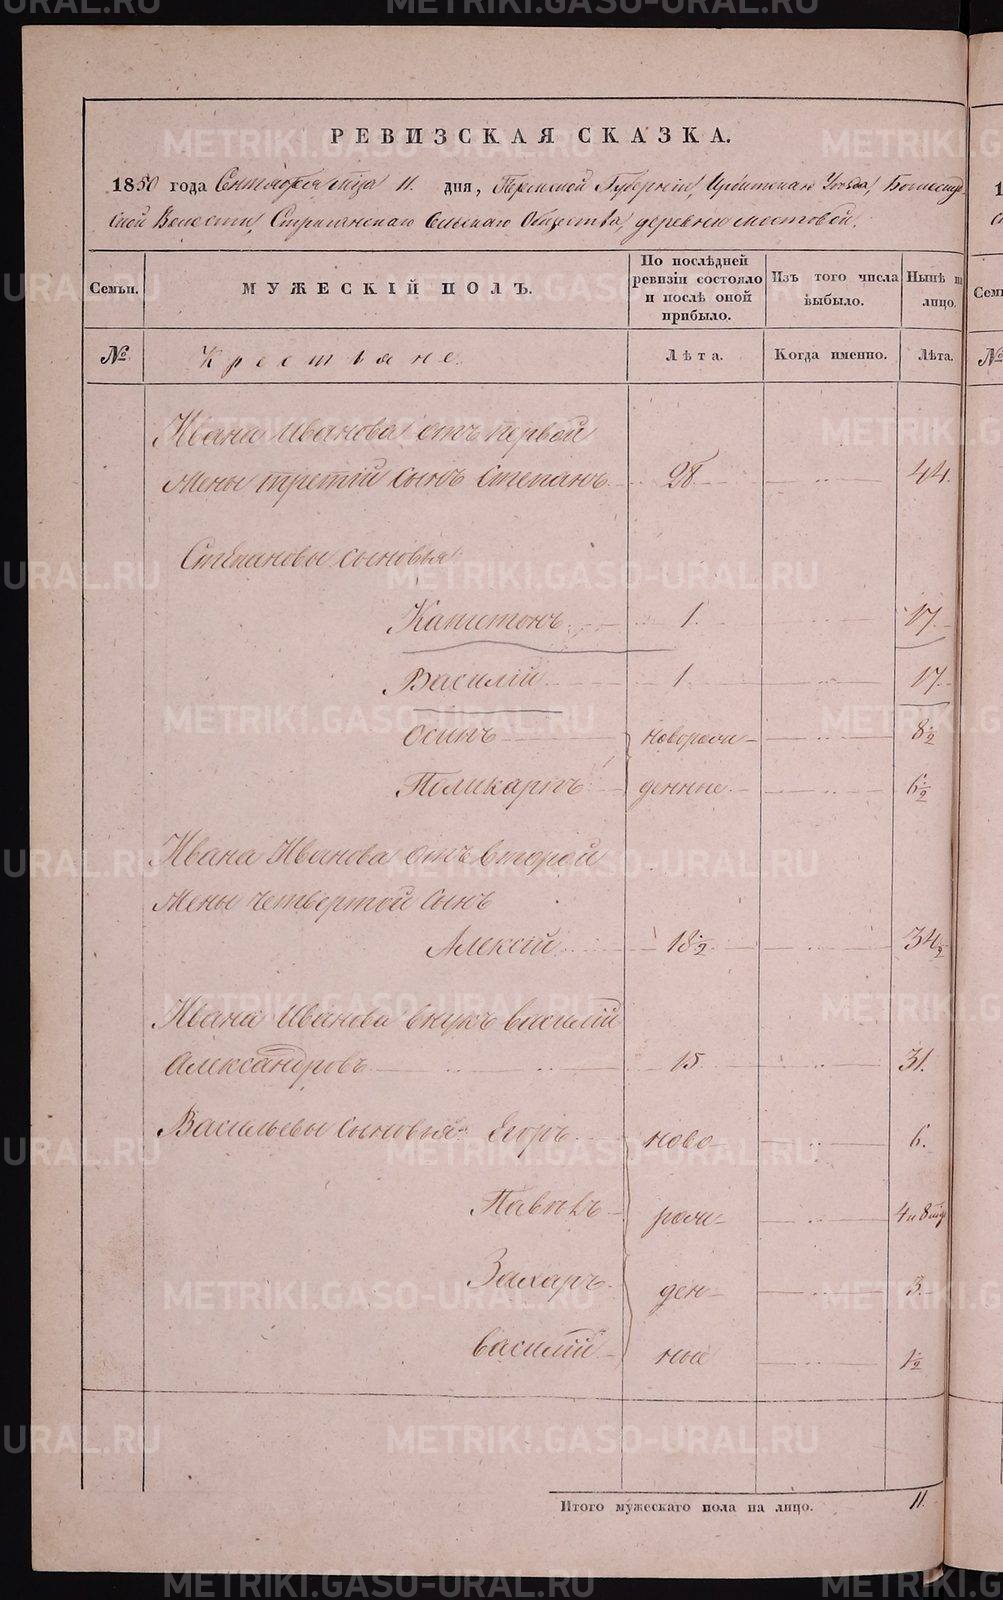 METRIKI.GASO-URAL.RU
РЕВИЗСКАЯ СКАЗКА.
1850 года Сентября месяца 11. дня, Пермской Губерніи, Ирбитскаго Уезда,
ской Волости, Стриганскаго Сельскаго Общества, деревни Мостовой.
Семьи.
МУЖЕСКІЙ ПОЛЪ.
По послѣдней ревизіи состояло и послѣ оной прибыло.
Изъ того числа выбыло.
Нынѣ на лицо.
№
Крестьяне.
Лѣта.
Когда именно.
Лѣта.
Ивана Иванова отъ первой
жены третій сынъ Степанъ 28 44.
Степановы сыновья
Капитонъ 1. 17.
Василій 1 17.
Осипъ новорож- 8 1/2
Поликарпъ денные 6 1/2
Ивана Иванова отъ второй
жены четвертой сынъ
Алексій 18 1/2 34 1/2
Ивана Иванова внукъ Василій
Александровъ 15 31.
Васильевы сыновья: Егоръ ново 6.
Павелъ рож- 4 и 8
Захаръ ден- 3.
Василій ные 1/2
Итого мужескаго пола на лицо. 11.